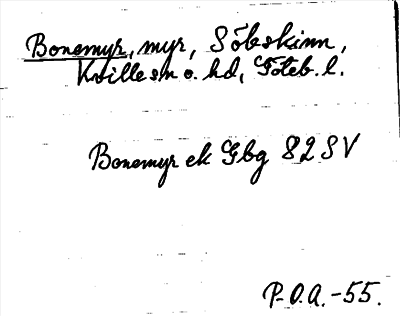 Bonemyr, myr, Söbskinn,
Kville sn o. hd, Göteb. l.
Bonemyr ek Gbg 82 SV
P-O.A.-55.